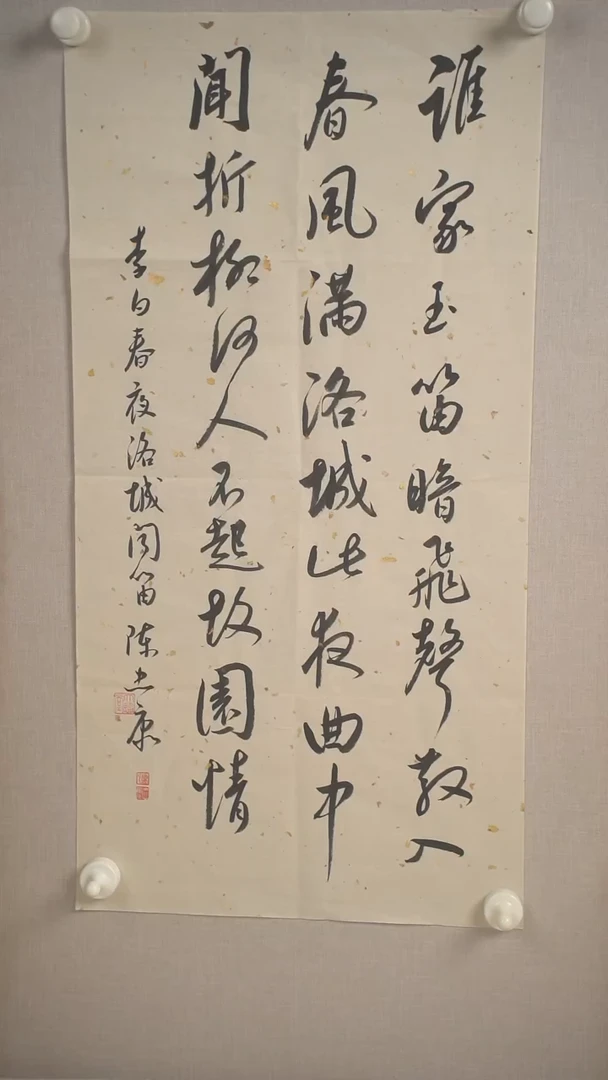 誰家玉笛暗飛聲散入
春風滿洛城此夜曲中
聞折柳何人不起故園情
李白春夜洛城聞笛 陳志康